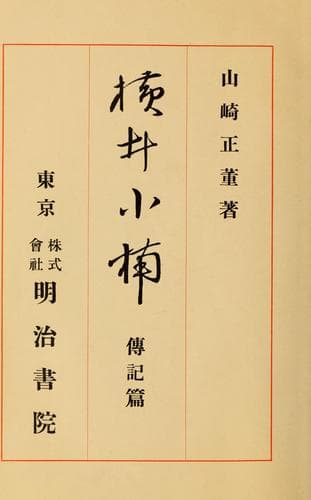 山崎正董著
横井小楠
傳記篇
東京
株式會社
明治書院